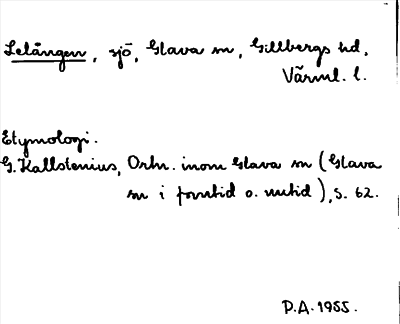 Lelången, sjö, Glava sn, Gillbergs hd,
Värml. l.
Etymologi.
G. Kallstenius, Ortn. inom Glava sn (Glava
sn i forntid o. nutid), s. 62.
P.A. 1955.